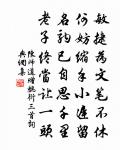 敏捷為文筆不休
何妨縮手小遲留
名駒已自思千里
老子終當讓一頭
陳師道贈魏衍三首詞
典網集